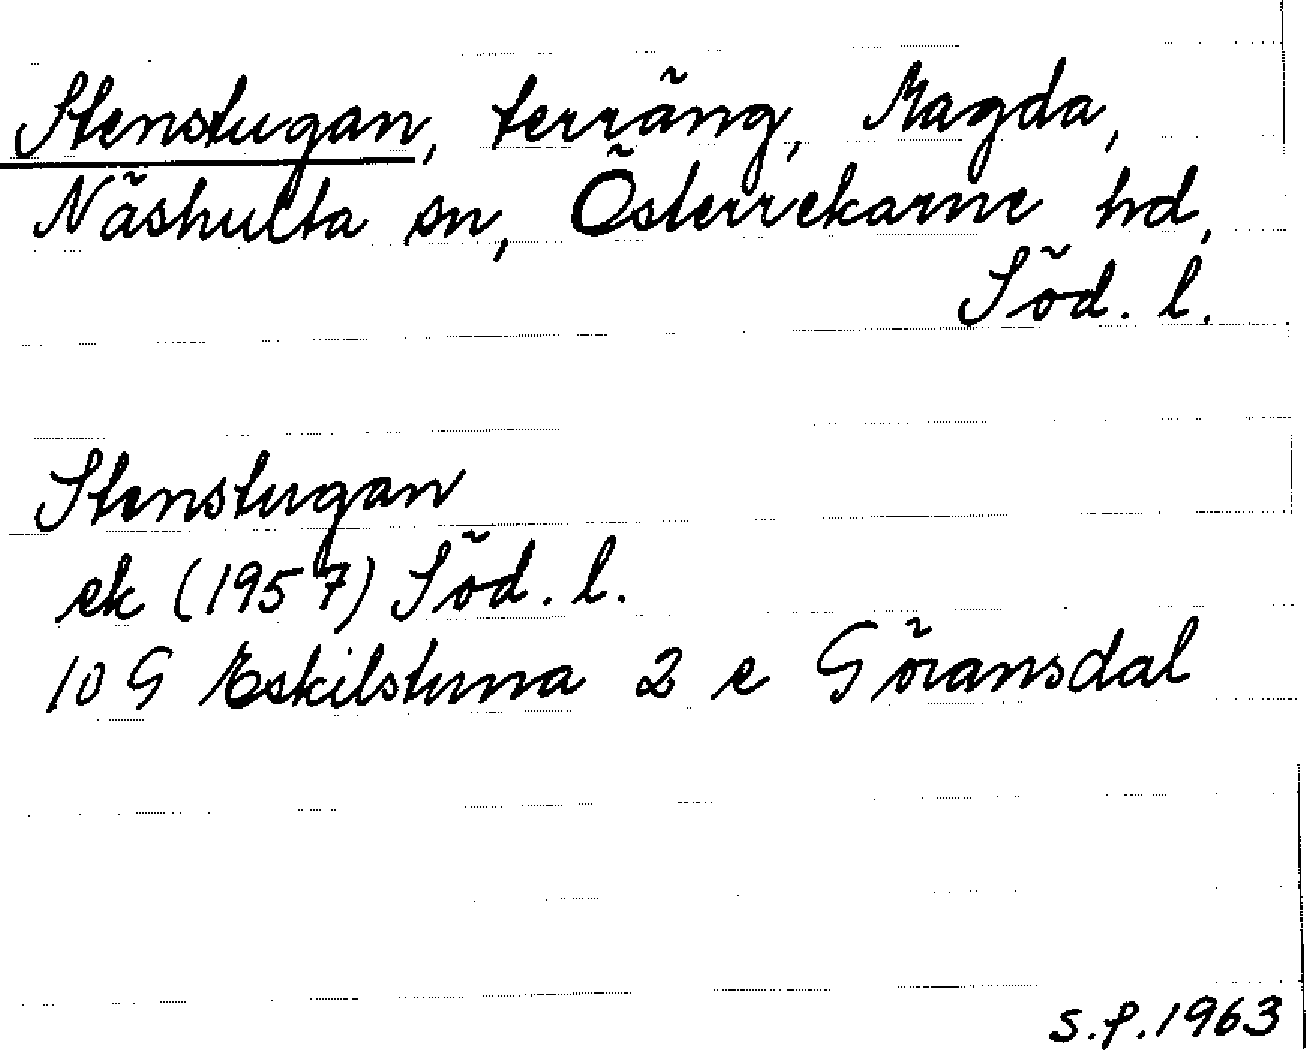 Stenstugan, terräng, Magda,
Näshulta sn, Österrekarne hd,
Söd. l.
Stenstugan
ek (1957) Söd. l.
10 G Eskilstuna 2 e Göransdal
s.f. 1963